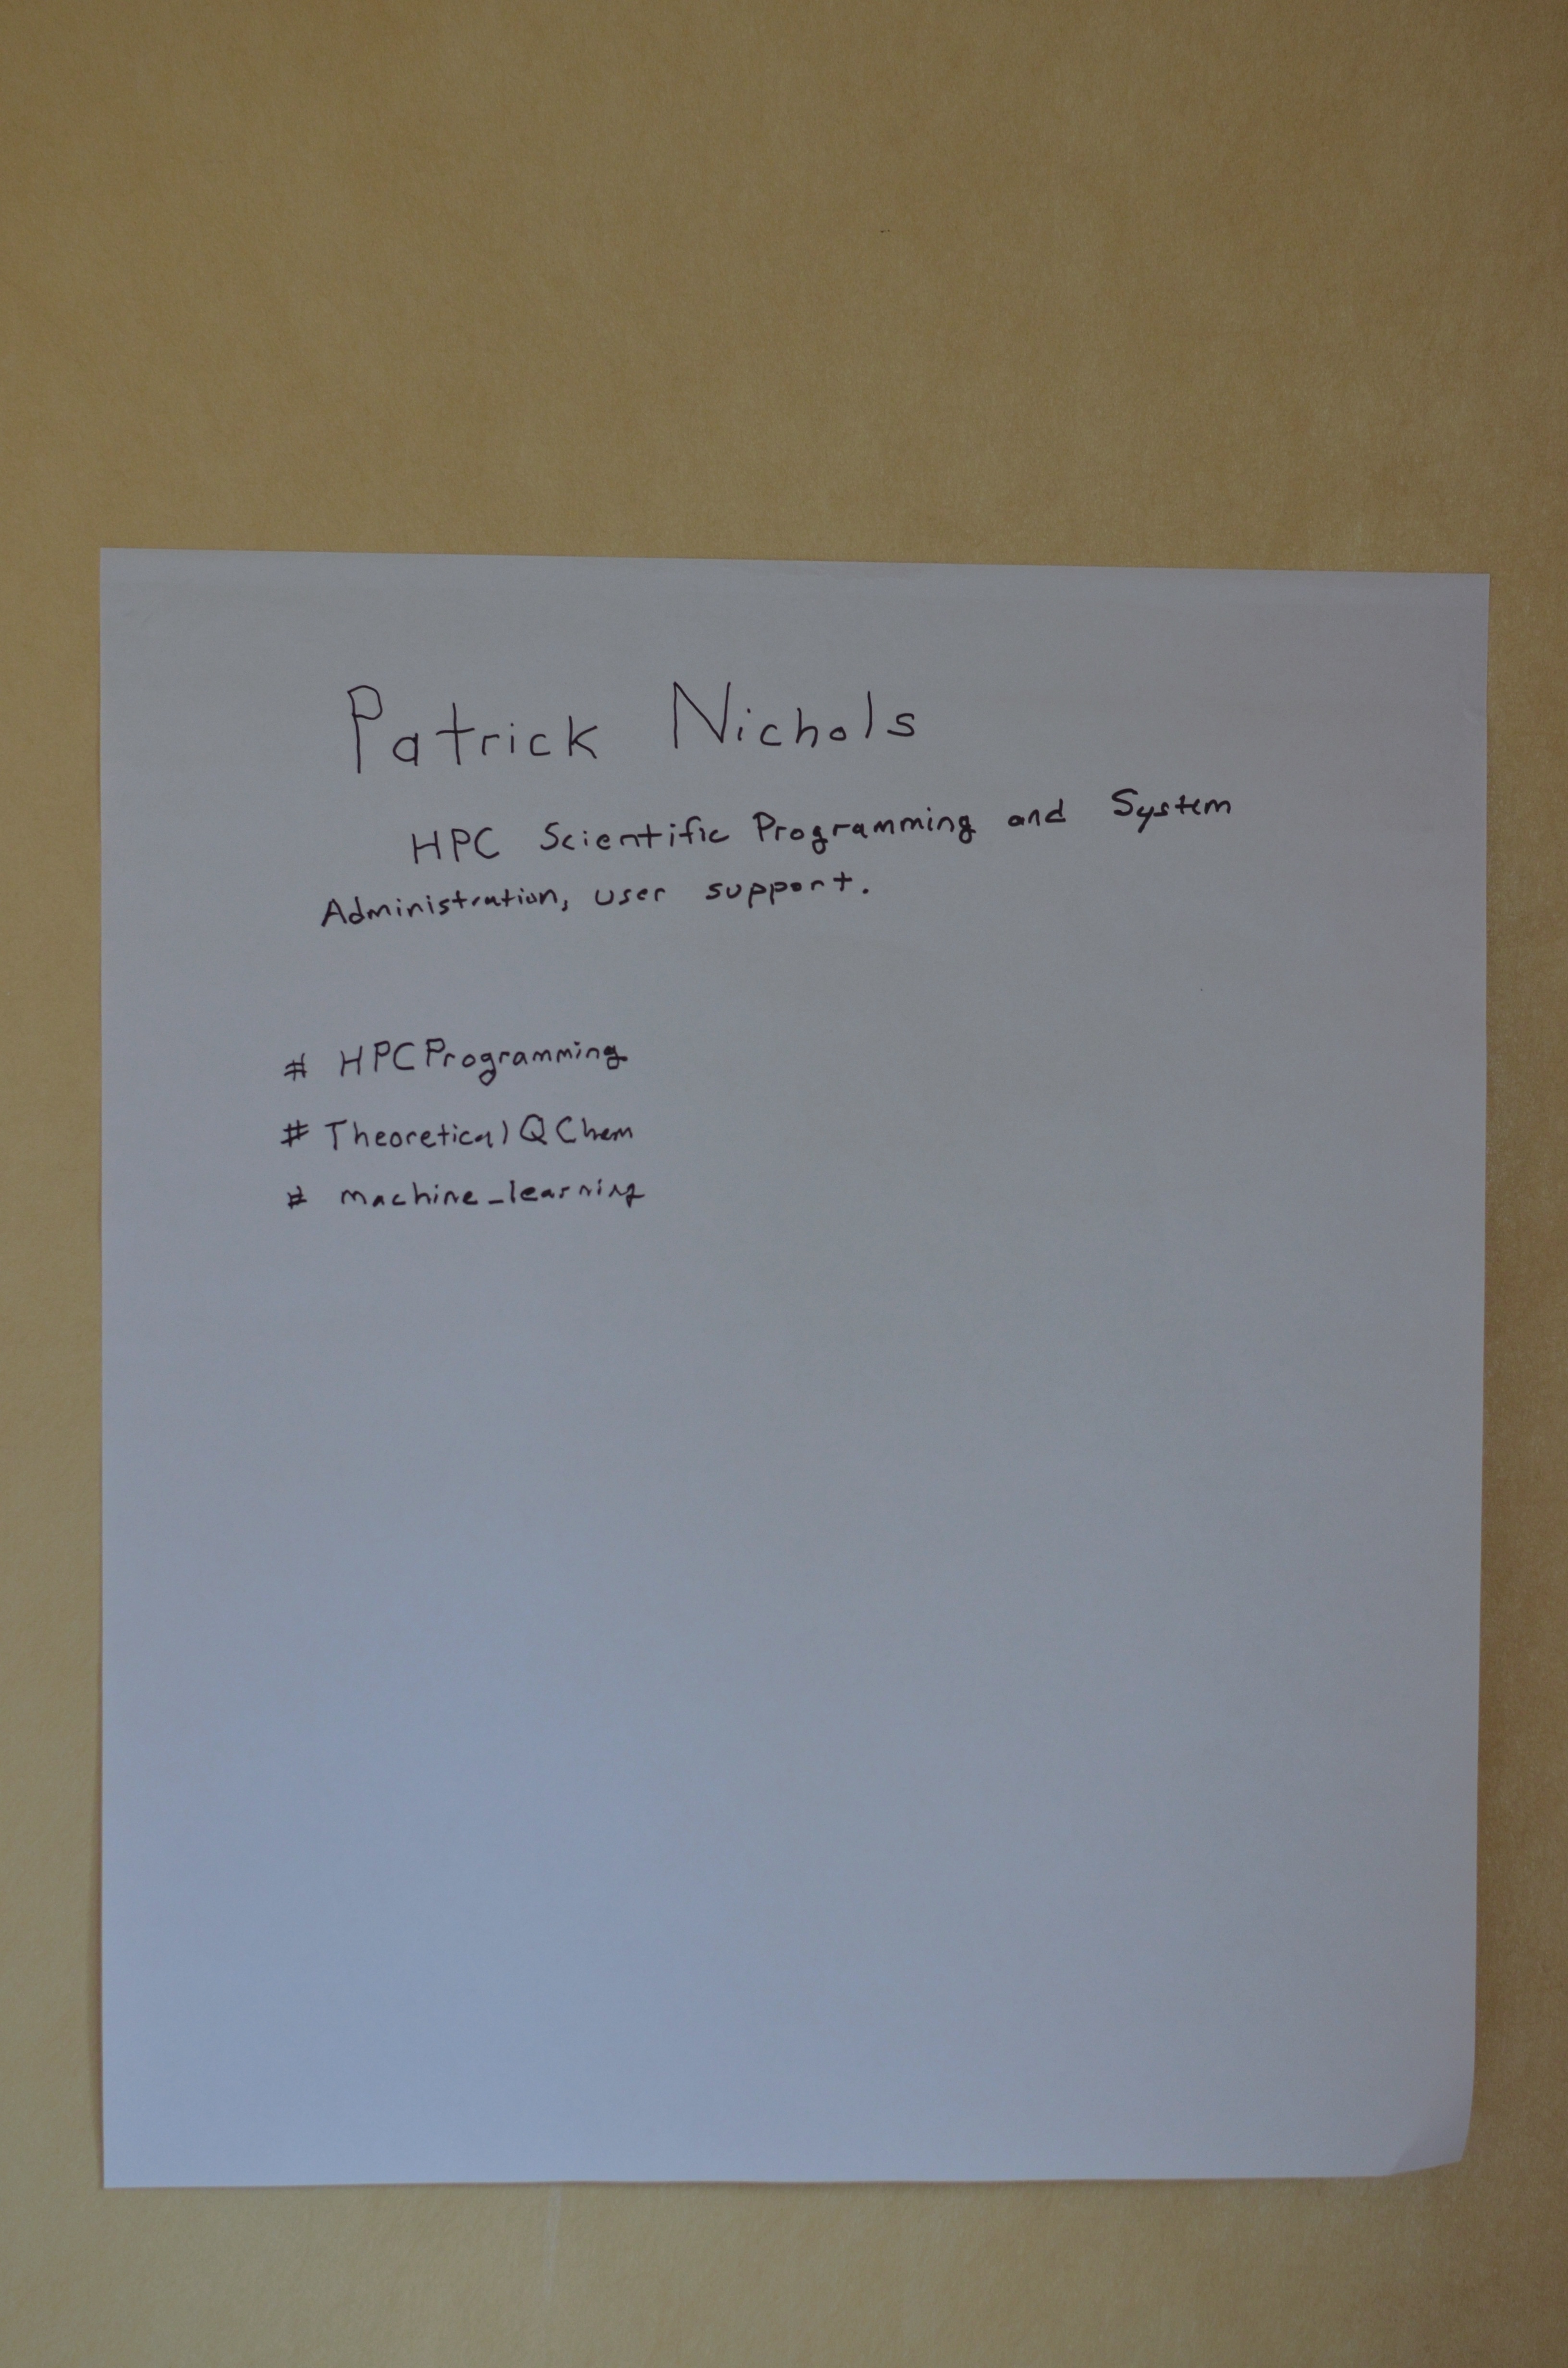 Patrick Nichols
HPC Scientific Programming and System
Administration, user support.
# HPCProgramming
# TheoreticalQChem
# machine_learning